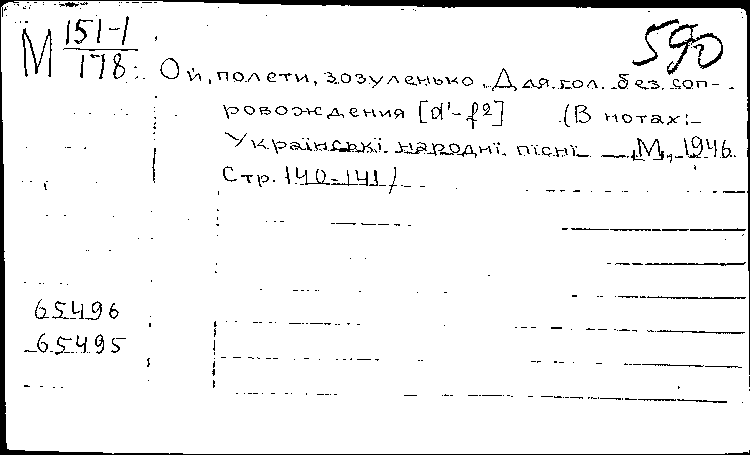 М 151-1/178
590
Ой, полети, зозуленько. Для гол. без соп-
ровождения [d'-f2] (В нотах:
Українські народнi пiснi М., 1946.
Стр. 140-141/
65496
65495